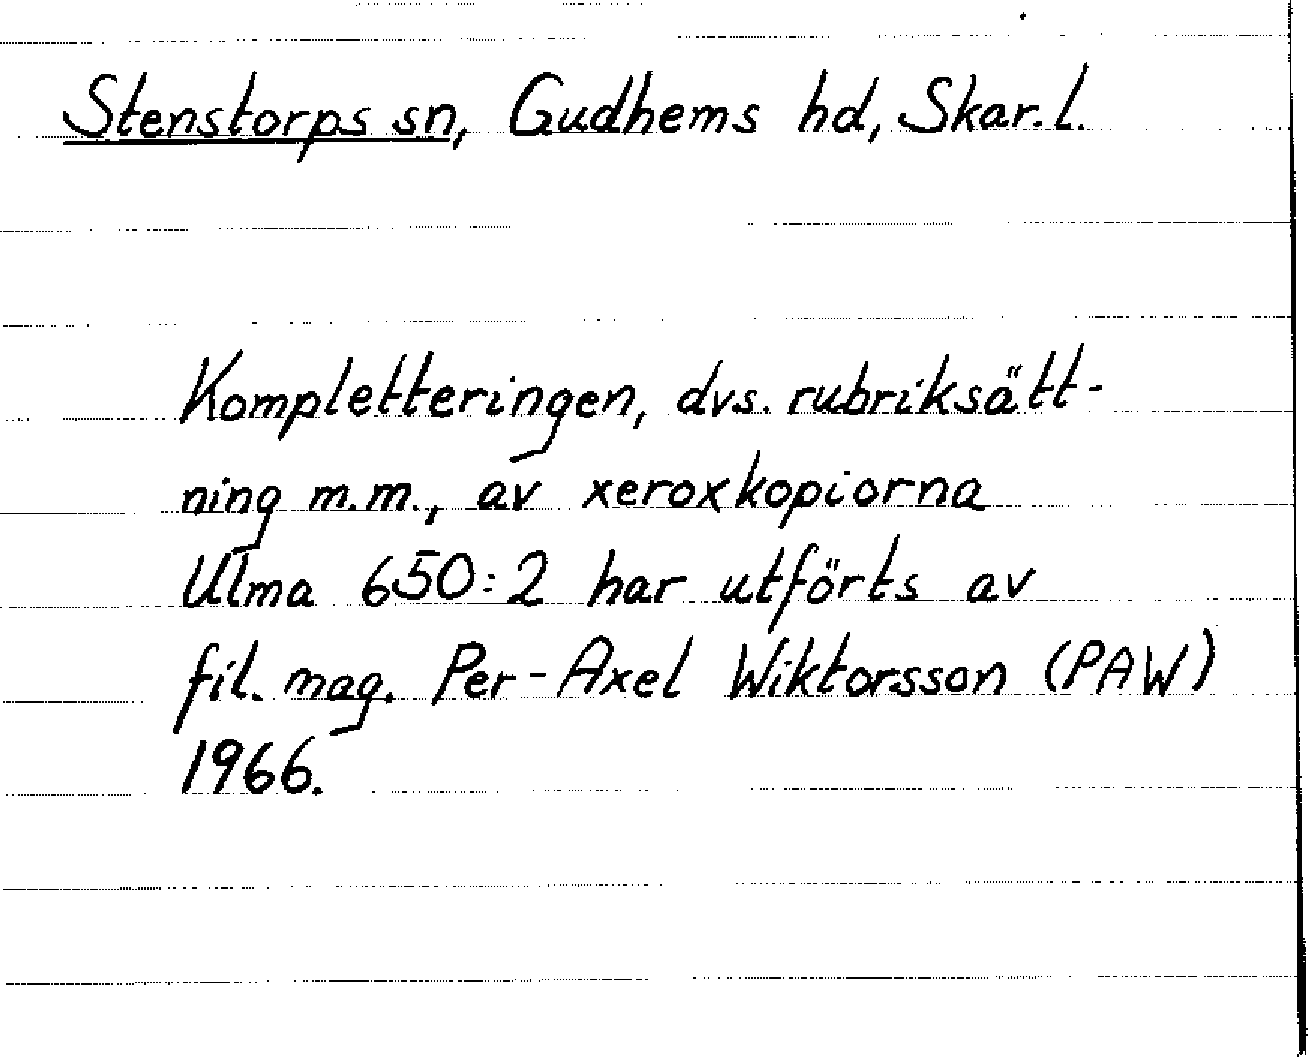 Stenstorps sn, Gudhems hd, Skar. l.
Kompletteringen, dvs. rubriksätt-
ning m.m., av xeroxkopiorna
Ulma 650:2 har utförts av
fil. mag. Per-Axel Wiktorsson (PAW)
1966.